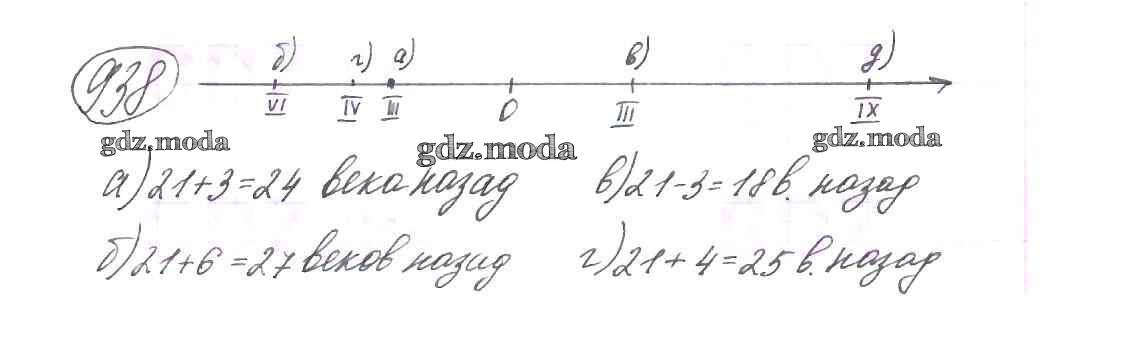 938
б) г) а) в) д)
VI IV III 0 III IX
gdz.moda gdz.moda gdz.moda
а) 21+3=24 века назад в) 21-3=18 в. назад
б) 21+6=27 веков назад г) 21+4=25 в. назад